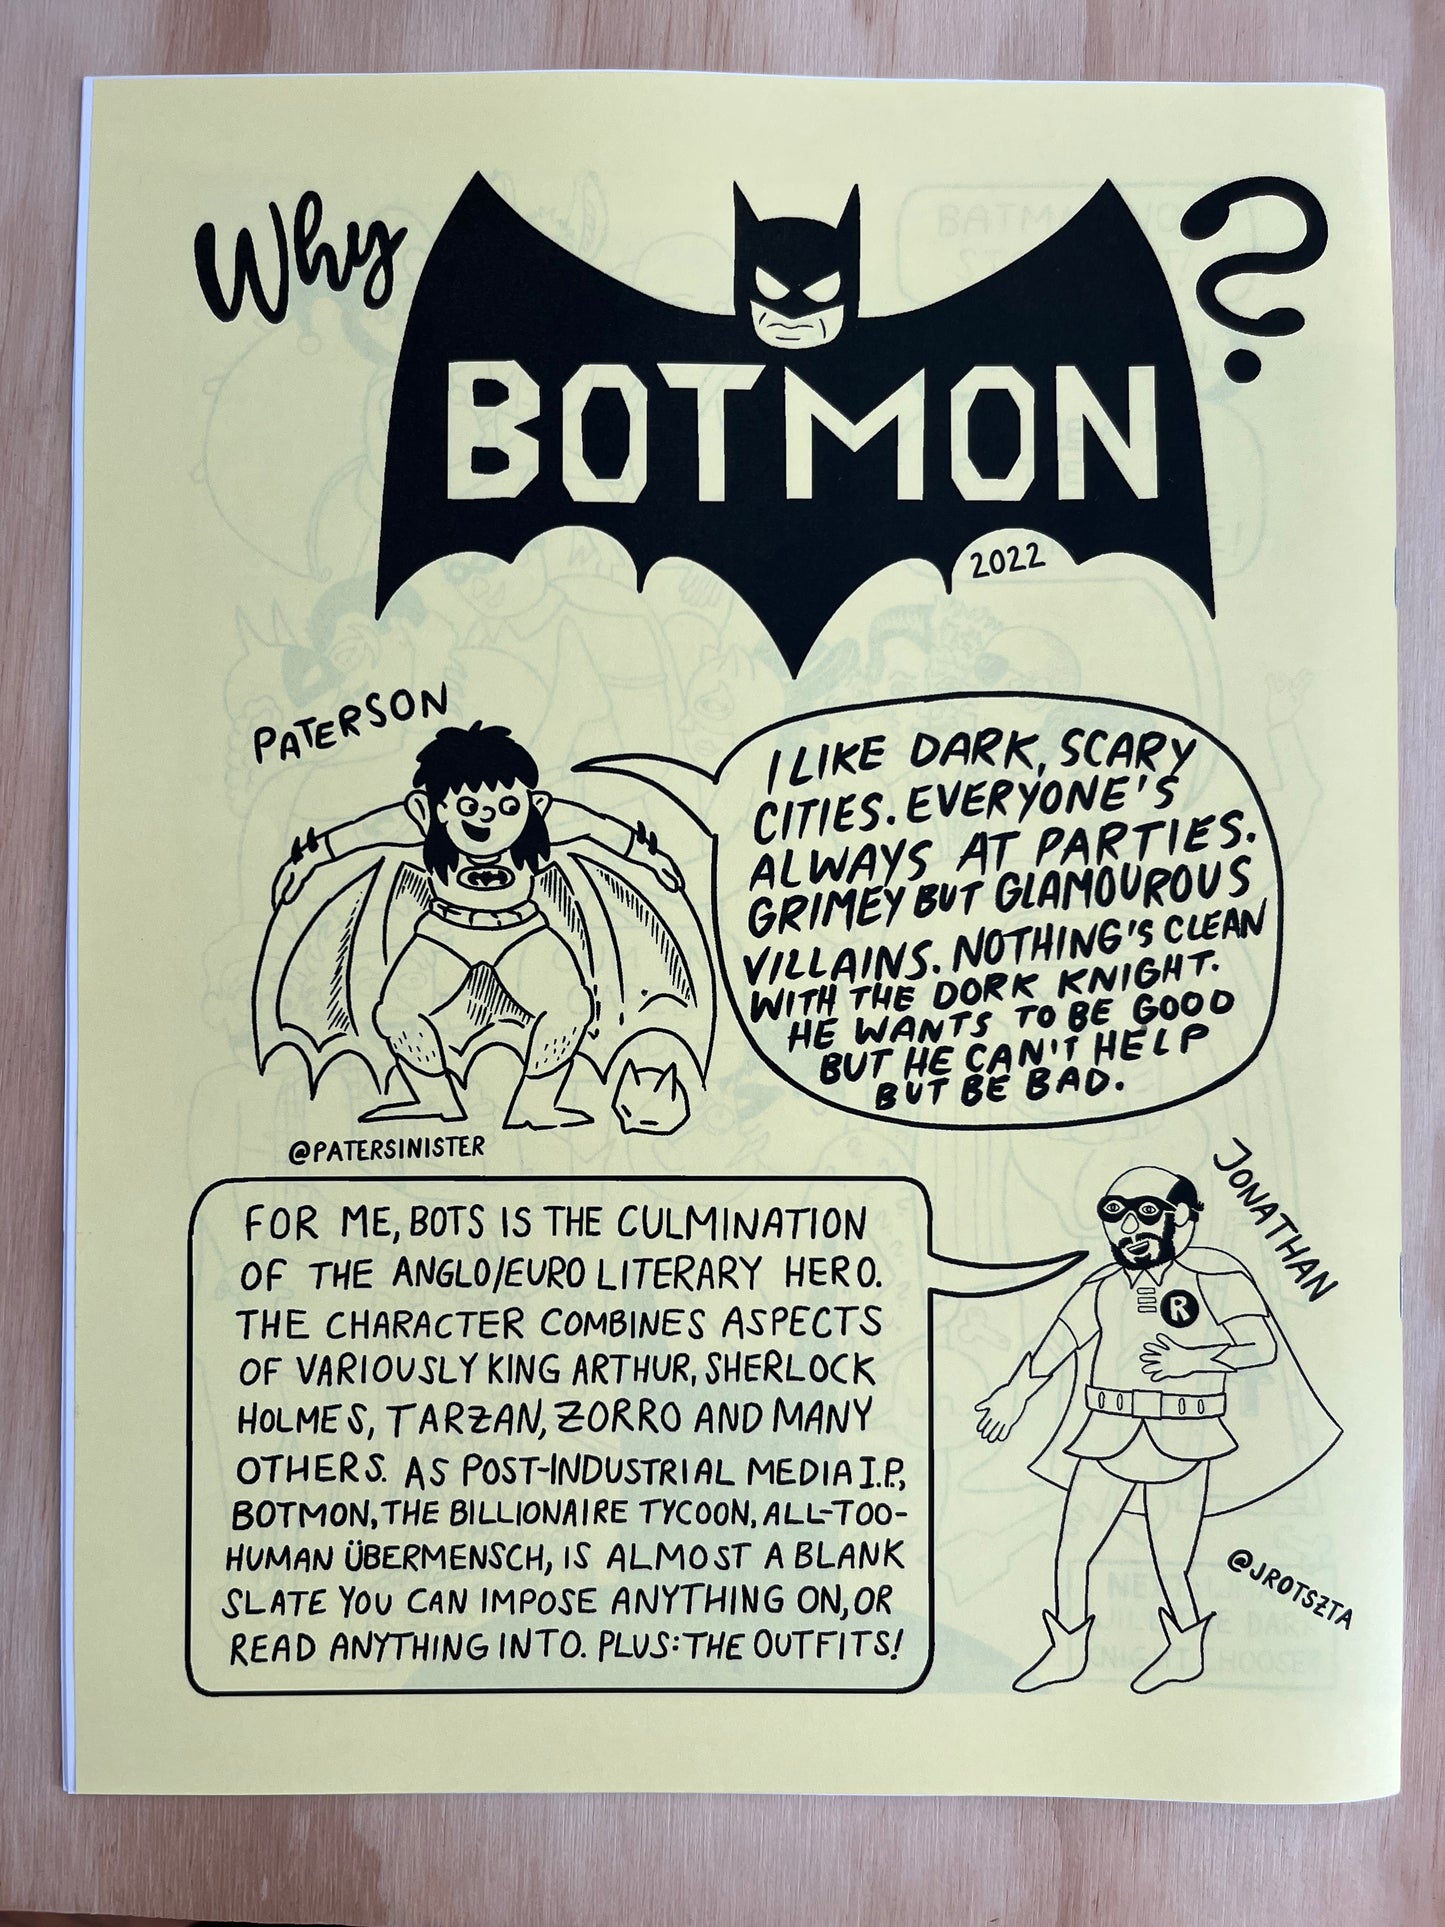 Why
?
BOTMON
2022
PATERSON
I LIKE DARK, SCARY
CITIES. EVERYONE'S
ALWAYS AT PARTIES.
GRIMEY BUT GLAMOUROUS
VILLAINS. NOTHING'S CLEAN
WITH THE DORK KNIGHT.
HE WANTS TO BE GOOD
BUT HE CAN'T HELP
BUT BE BAD.
@PATERSINISTER
JONATHAN
FOR ME, BOTS IS THE CULMINATION
OF THE ANGLO/EURO LITERARY HERO.
THE CHARACTER COMBINES ASPECTS
OF VARIOUSLY KING ARTHUR, SHERLOCK
HOLMES, TARZAN, ZORRO AND MANY
OTHERS. AS POST-INDUSTRIAL MEDIA I.P.,
BOTMON, THE BILLIONAIRE TYCOON, ALL-TOO-
HUMAN ÜBERMENSCH, IS ALMOST A BLANK
SLATE YOU CAN IMPOSE ANYTHING ON, OR
READ ANYTHING INTO. PLUS: THE OUTFITS!
R
@JROTSZTA